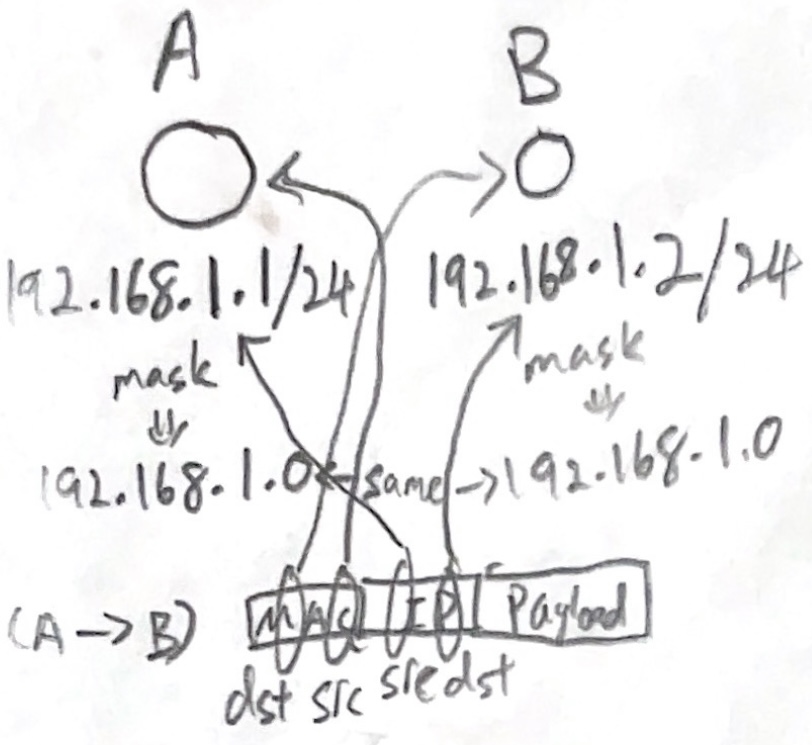 A B
192.168.1.1/24 192.168.1.2/24
mask mask
192.168.1.0 same 192.168.1.0
(A -> B) MAC IP Payload
dst src src dst